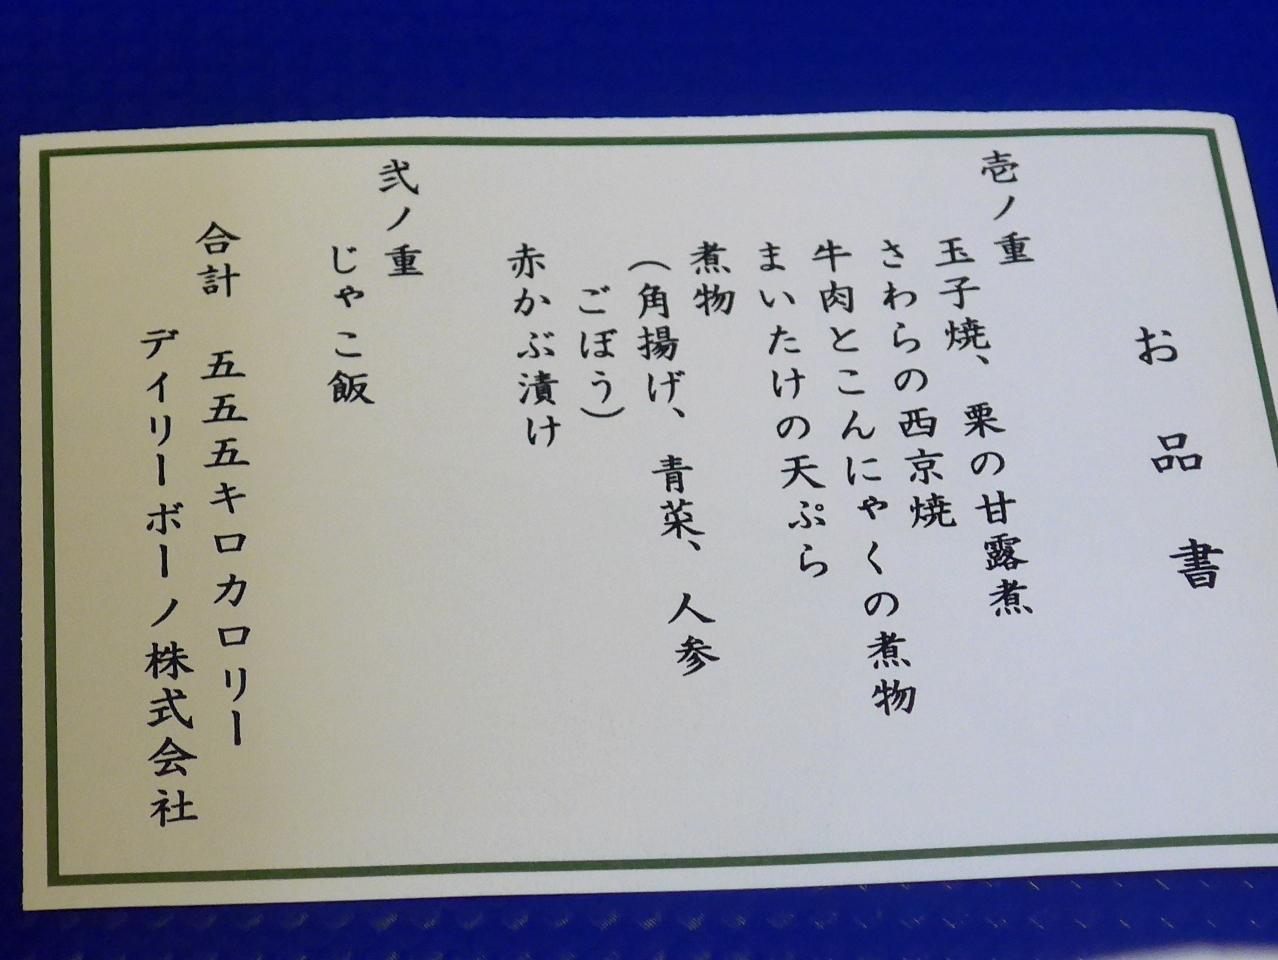 お品書
壱ノ重
玉子焼、栗の甘露煮
さわらの西京焼
牛肉とこんにゃくの煮物
まいたけの天ぷら
煮物
(角揚げ、青菜、人参
ごぼう)
赤かぶ漬け
弐ノ重
じゃこ飯
合計 五五五キロカロリー
デイリーボーノ株式会社